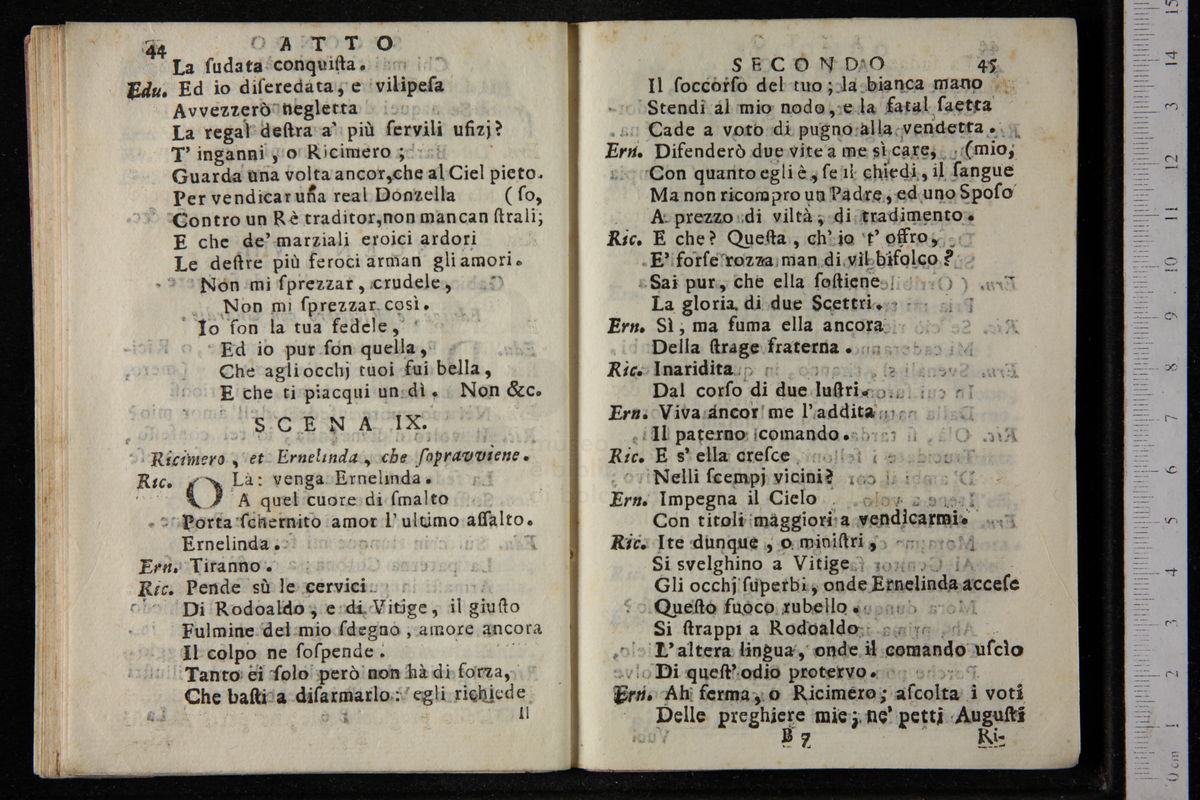 44 ATTO
La ſudata conquiſta.
Edu. Ed io diſeredata, e vilipeſa
Avvezzerò negletta
La regal deſtra a' più ſervili ufizj?
T' inganni, o Ricimero;
Guarda una volta ancor, che al Ciel pieto-
Per vendicar una real Donzella (ſo,
Contro un Rè traditor, non mancan ſtrali;
E che de' marziali eroici ardori
Le deſtre più feroci arman gli amori.
Non mi ſprezzar, crudele,
Non mi ſprezzar così.
Io ſon la tua fedele,
Ed io pur ſon quella,
Che agli occhj tuoi fui bella,
E che ti piacqui un dì. Non &c.
SCENA IX.
Ricimero, et Ernelinda, che ſopravviene.
Ric. OLà: venga Ernelinda.
A quel cuore di ſmalto
Porta ſchernito amor l'ultimo aſſalto.
Ernelinda.
Ern. Tiranno.
Ric. Pende sù le cervici
Di Rodoaldo, e di Vitige, il giuſto
Fulmine del mio ſdegno, amore ancora
Il colpo ne ſoſpende.
Tanto ei ſolo però non hà di forza,
Che baſti a diſarmarlo: egli richiede
Il
SECONDO 45
Il ſoccorſo del tuo; la bianca mano
Stendi al mio nodo, e la fatal ſaetta
Cade a voto di pugno alla vendetta.
Ern. Difenderò due vite a me sì care, (mio,
Con quanto egli è, ſe il chiedi, il ſangue
Ma non ricompro un Padre, ed uno Spoſo
A prezzo di viltà, di tradimento.
Ric. E che? Queſta, ch' io t' offro,
E' forſe rozza man di vil bifolco?
Sai pur, che ella ſoſtiene
La gloria di due Scettri.
Ern. Sì, ma fuma ella ancora
Della ſtrage fraterna.
Ric. Inaridita
Dal corſo di due luſtri.
Ern. Viva ancor me l'addita
Il paterno comando.
Ric. E s' ella creſce
Nelli ſcempj vicini?
Ern. Impegna il Cielo
Con titoli maggiori a vendicarmi.
Ric. Ite dunque, o miniſtri,
Si svelghino a Vitige
Gli occhj ſuperbi, onde Ernelinda acceſe
Queſto fuoco rubello.
Si ſtrappi a Rodoaldo
L'altera lingua, onde il comando uſcìo
Di queſt' odio protervo.
Ern. Ah ferma, o Ricimero; aſcolta i voti
Delle preghiere mie; ne' petti Auguſti
B 7 Ri-